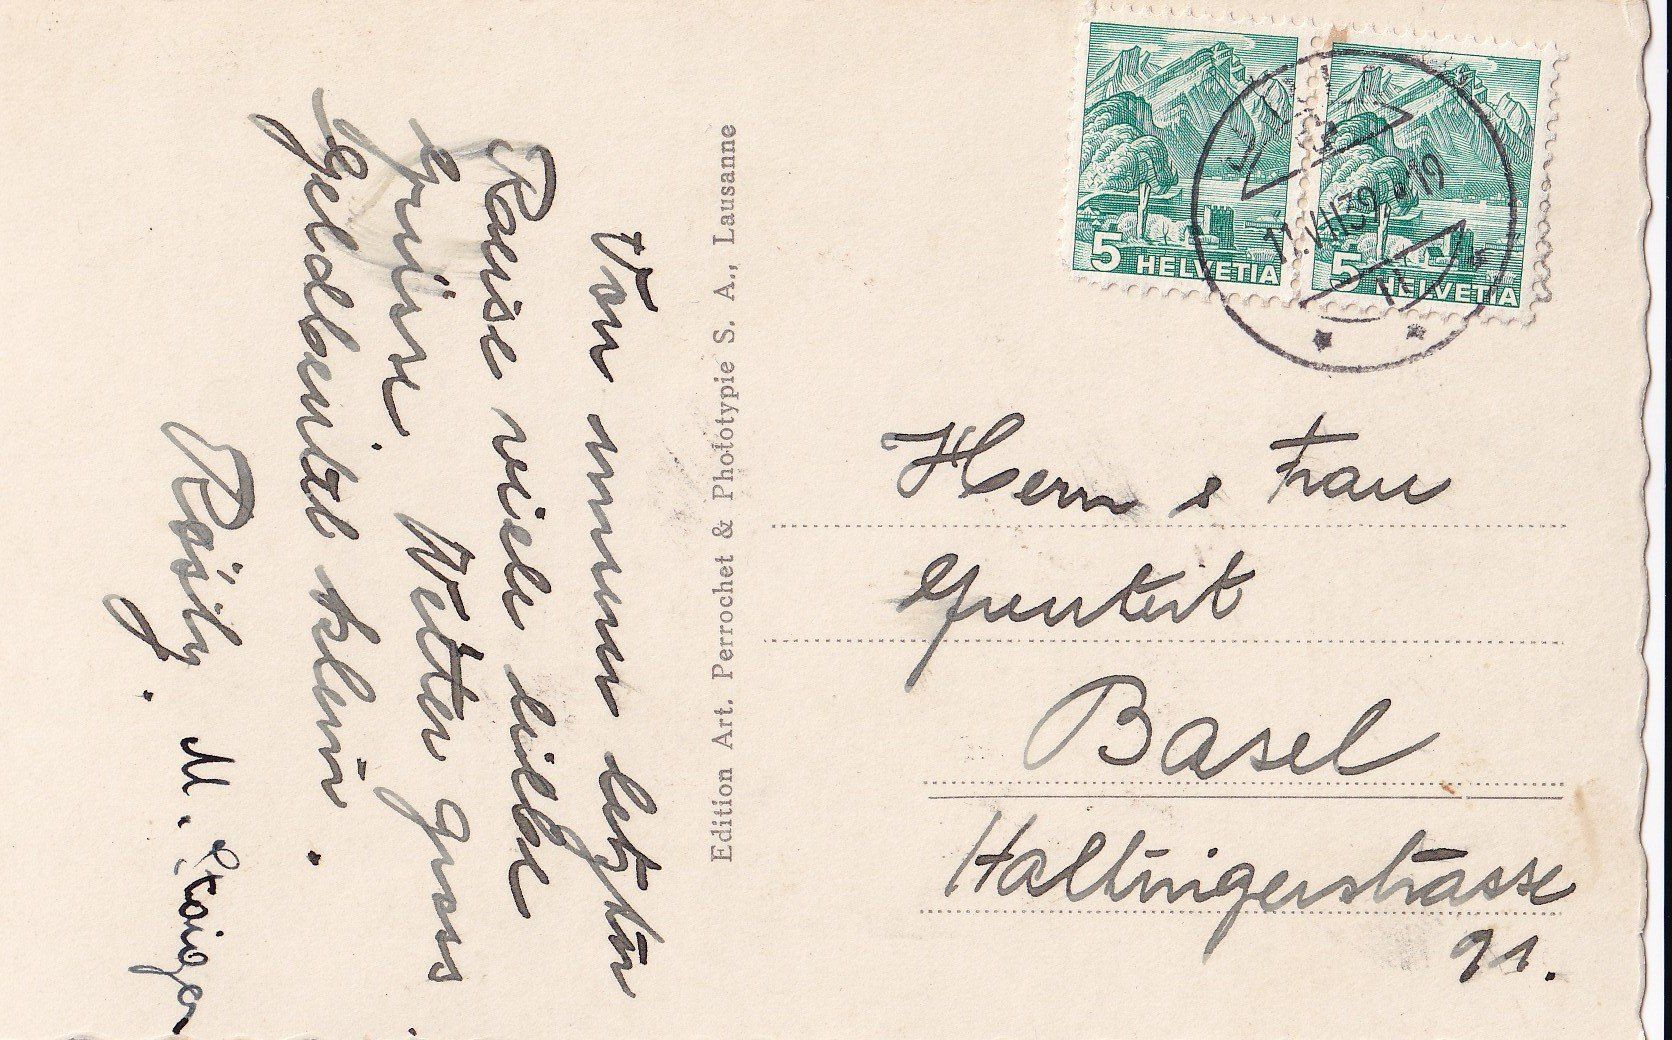 Von unserer letzten
Reise viele liebe
Grüsse. Wetter gross
Geldbeutel klein.
Rösly. M.
Edition Art. Perrochet & Phototypie S. A., Lausanne
5 HELVETIA
5 HELVETIA
11.VIII39
19
Herrn & Frau
Basel
Haltingerstrasse
91.